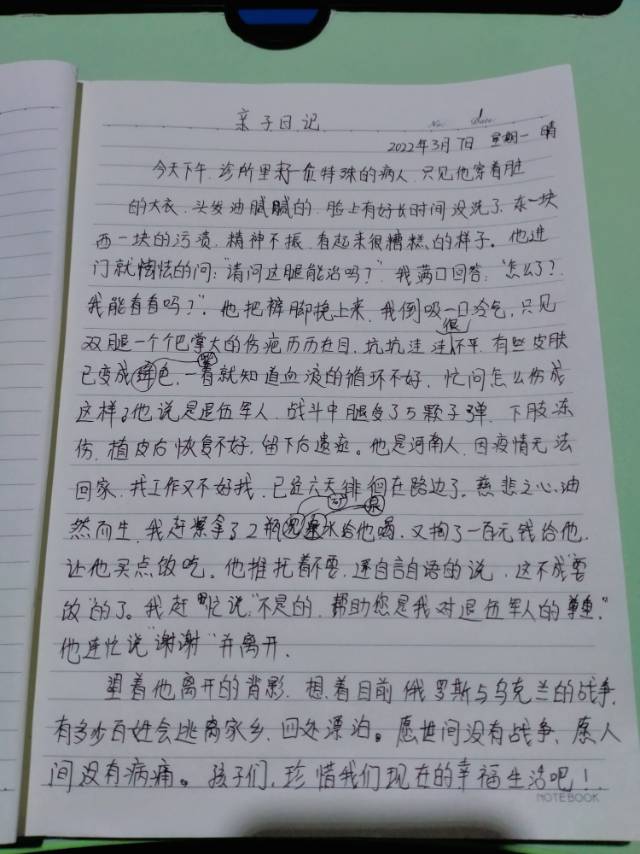 亲子日记
No. Date
2022年3月7日 星期一 晴
今天下午,诊所里来一位特殊的病人,只见他穿着脏
的大衣,头发油腻腻的,脸上有好长时间没洗了,东一块
西一块的污渍,精神不振,看起来很糟糕的样子。他进
门就怯怯的问:“请问这腿能治吗?”我满口回答:“怎么了?
我能看看吗?”。他把裤脚挽上来,我倒吸一口冷气,只见
双腿一个个巴掌大的伤疤历历在目,坑坑洼洼很不平,有些皮肤
已变成黑色,一看就知道血液的循环不好,忙问怎么伤成
这样?他说是退伍军人,战斗中腿受了5颗子弹,下肢冻
伤,植皮后恢复不好,留下后遗症。他是河南人,因疫情无法
回家,找工作又不好找,已经六天徘徊在路边了。慈悲之心油
然而生,我赶紧拿了2瓶矿泉水给他喝,又掏了一百元钱给他,
让他买点饭吃。他推托着不要,还自言自语的说,这不成“要
饭”的了。我赶忙说:“不是的,帮助您是我对退伍军人的尊重。”
他连忙说“谢谢”并离开,
望着他离开的背影,想着目前俄罗斯与乌克兰的战争,
有多少百姓会逃离家乡,四处漂泊。愿世间没有战争,愿人
间没有病痛。孩子们,珍惜我们现在的幸福生活吧!
NOTEBOOK